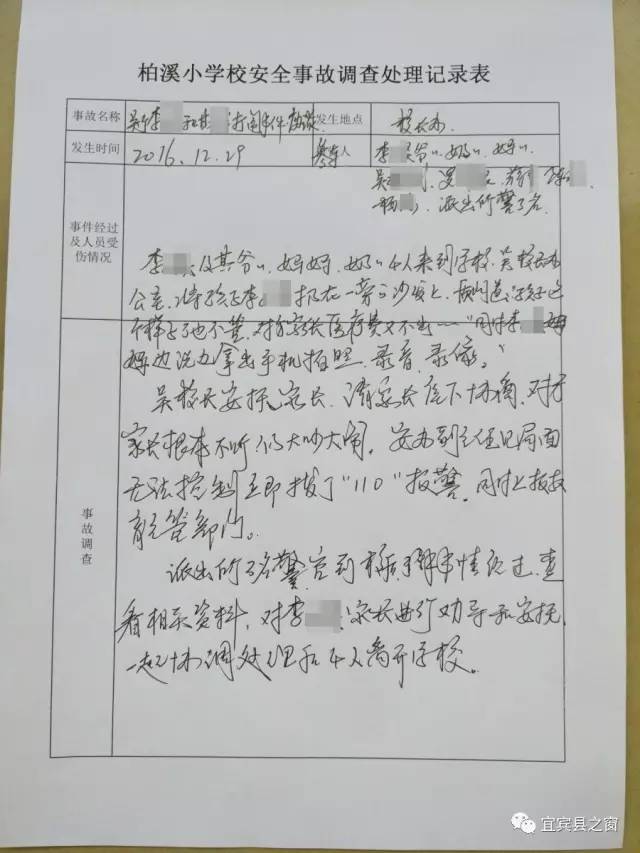 柏溪小学校安全事故调查处理记录表
事故名称 李 和 打闹事件 发生地点 校长办
发生时间 2016.12.29 人 李 爷爷、奶奶、妈妈
吴
派出所警3名
事件经过
及人员受
伤情况
李 及其爷爷、妈妈、奶奶4人来到学校吴校长办
公室,将孩子李 扔在一旁沙发上,质问道:孩子这
个样子了也不管,对方家长医疗费又不出……"同时李 妈
妈边说边拿出手机拍照、录音、录像。
吴校长安抚家长,请家长底下协商,对方
家长根本不听,仍大吵大闹,安办副主任见局面
无法控制立即拨了"110"报警,同时上报教
育主管部门。
事故调查
派出所3名警官到校后了解事情经过,查
看相关资料,对李 家长进行劝导和安抚,
一起协调处理和4人离开学校。
宜宾县之窗